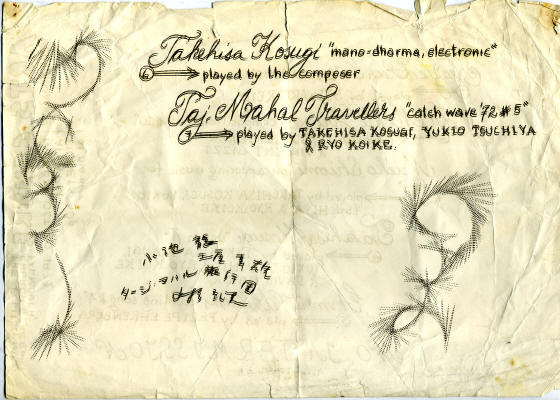 Takehisa Kosugi "mano-dharma, electronic"
6 → played by the composer
Taj. Mahal Travellers "catch wave '72 #5"
7 → played by TAKEHISA KOSUGI, YUKIO TSUCHIYA
& RYO KOIKE.
小池 龍
土屋 幸雄
タージ・マハル旅行団
小杉 武久